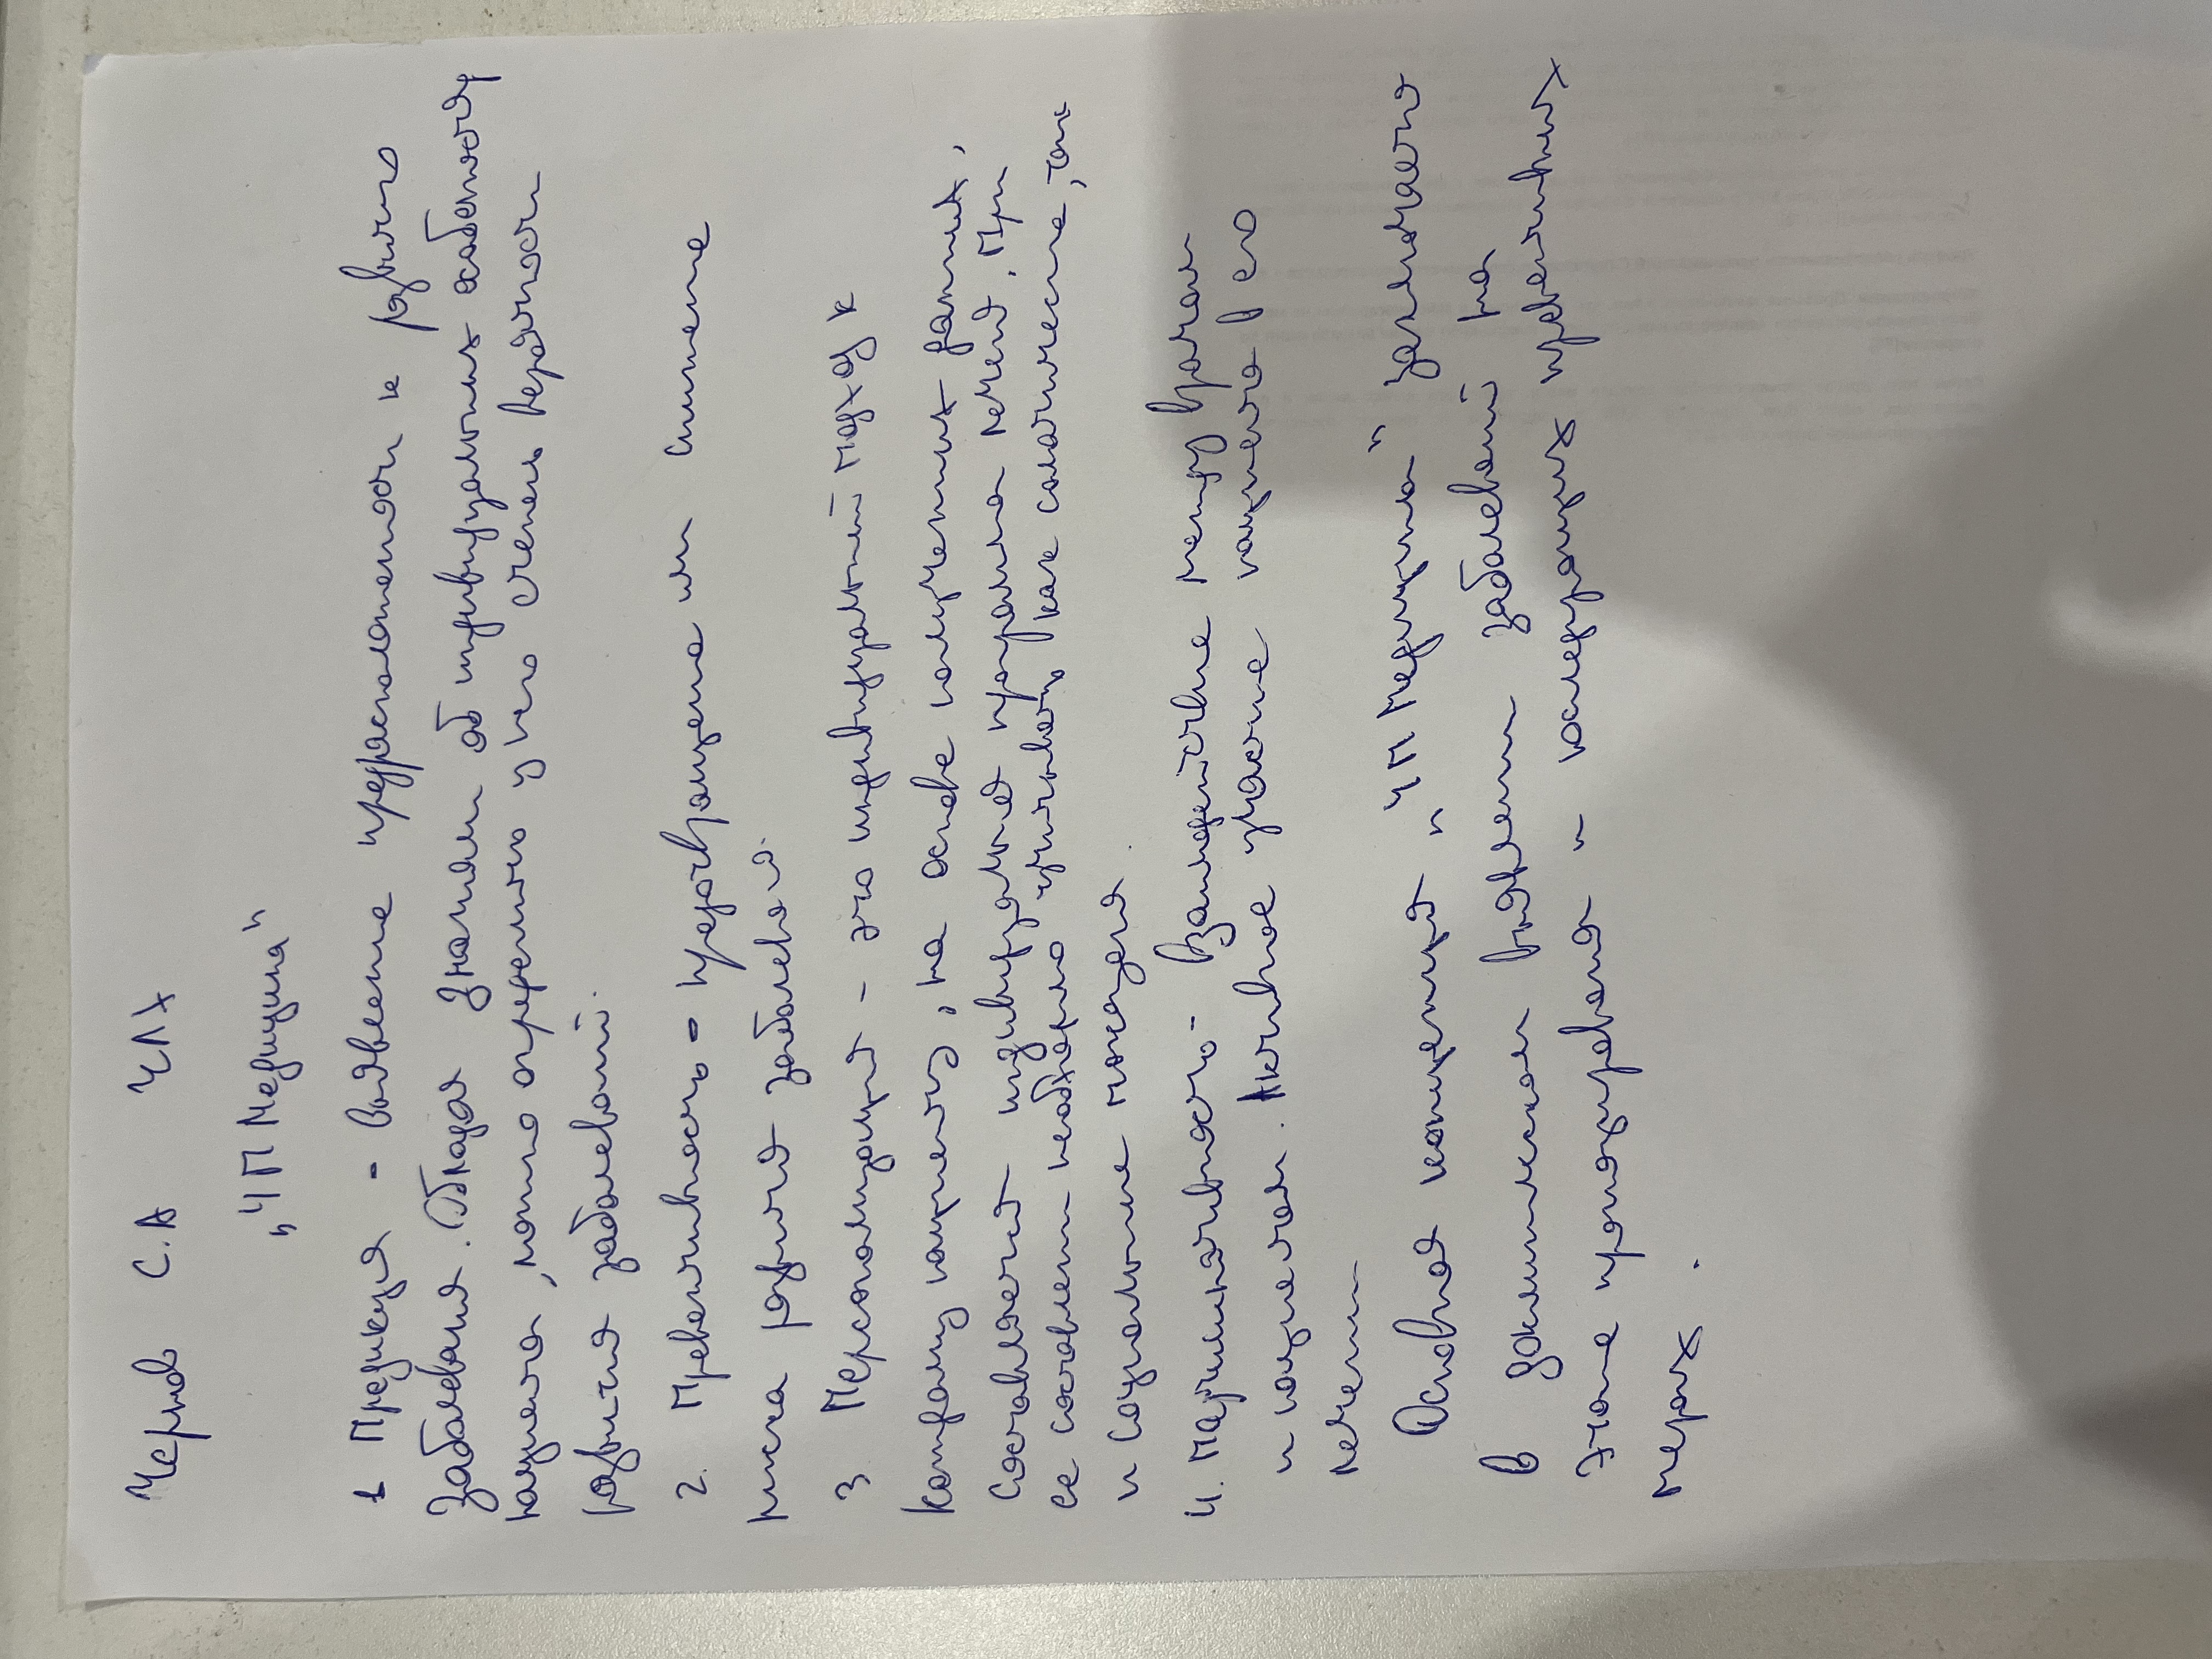 Чернов С.А ЧЛХ
„4П Медицина“
1 Предикция - выявление предрасположености к развитию
заболевания. Обладая знаниями об индивидуальных особеностях
пациента, можно определить у него степень вероятности
развития заболеваний.
2. Превентивность - предотвращение или снижение
риска развития заболевания.
3 Персонализация - это индивидуальный подход к
каждому пациенту, на основе полученных данных,
составляется индивидуальная программа лечения. При
ее составлении необходимо учитывать как соматические, так
и социальные показания.
4. Партисипативность - взаимодействие между врачом
и пациентом. Активное участие пациента в его
лечении
Основная концепция „4П Медицина“ заключается
в доклиническом выявлении заболеваний на
этапе прогнозирования и последующих превентивных
мерах.